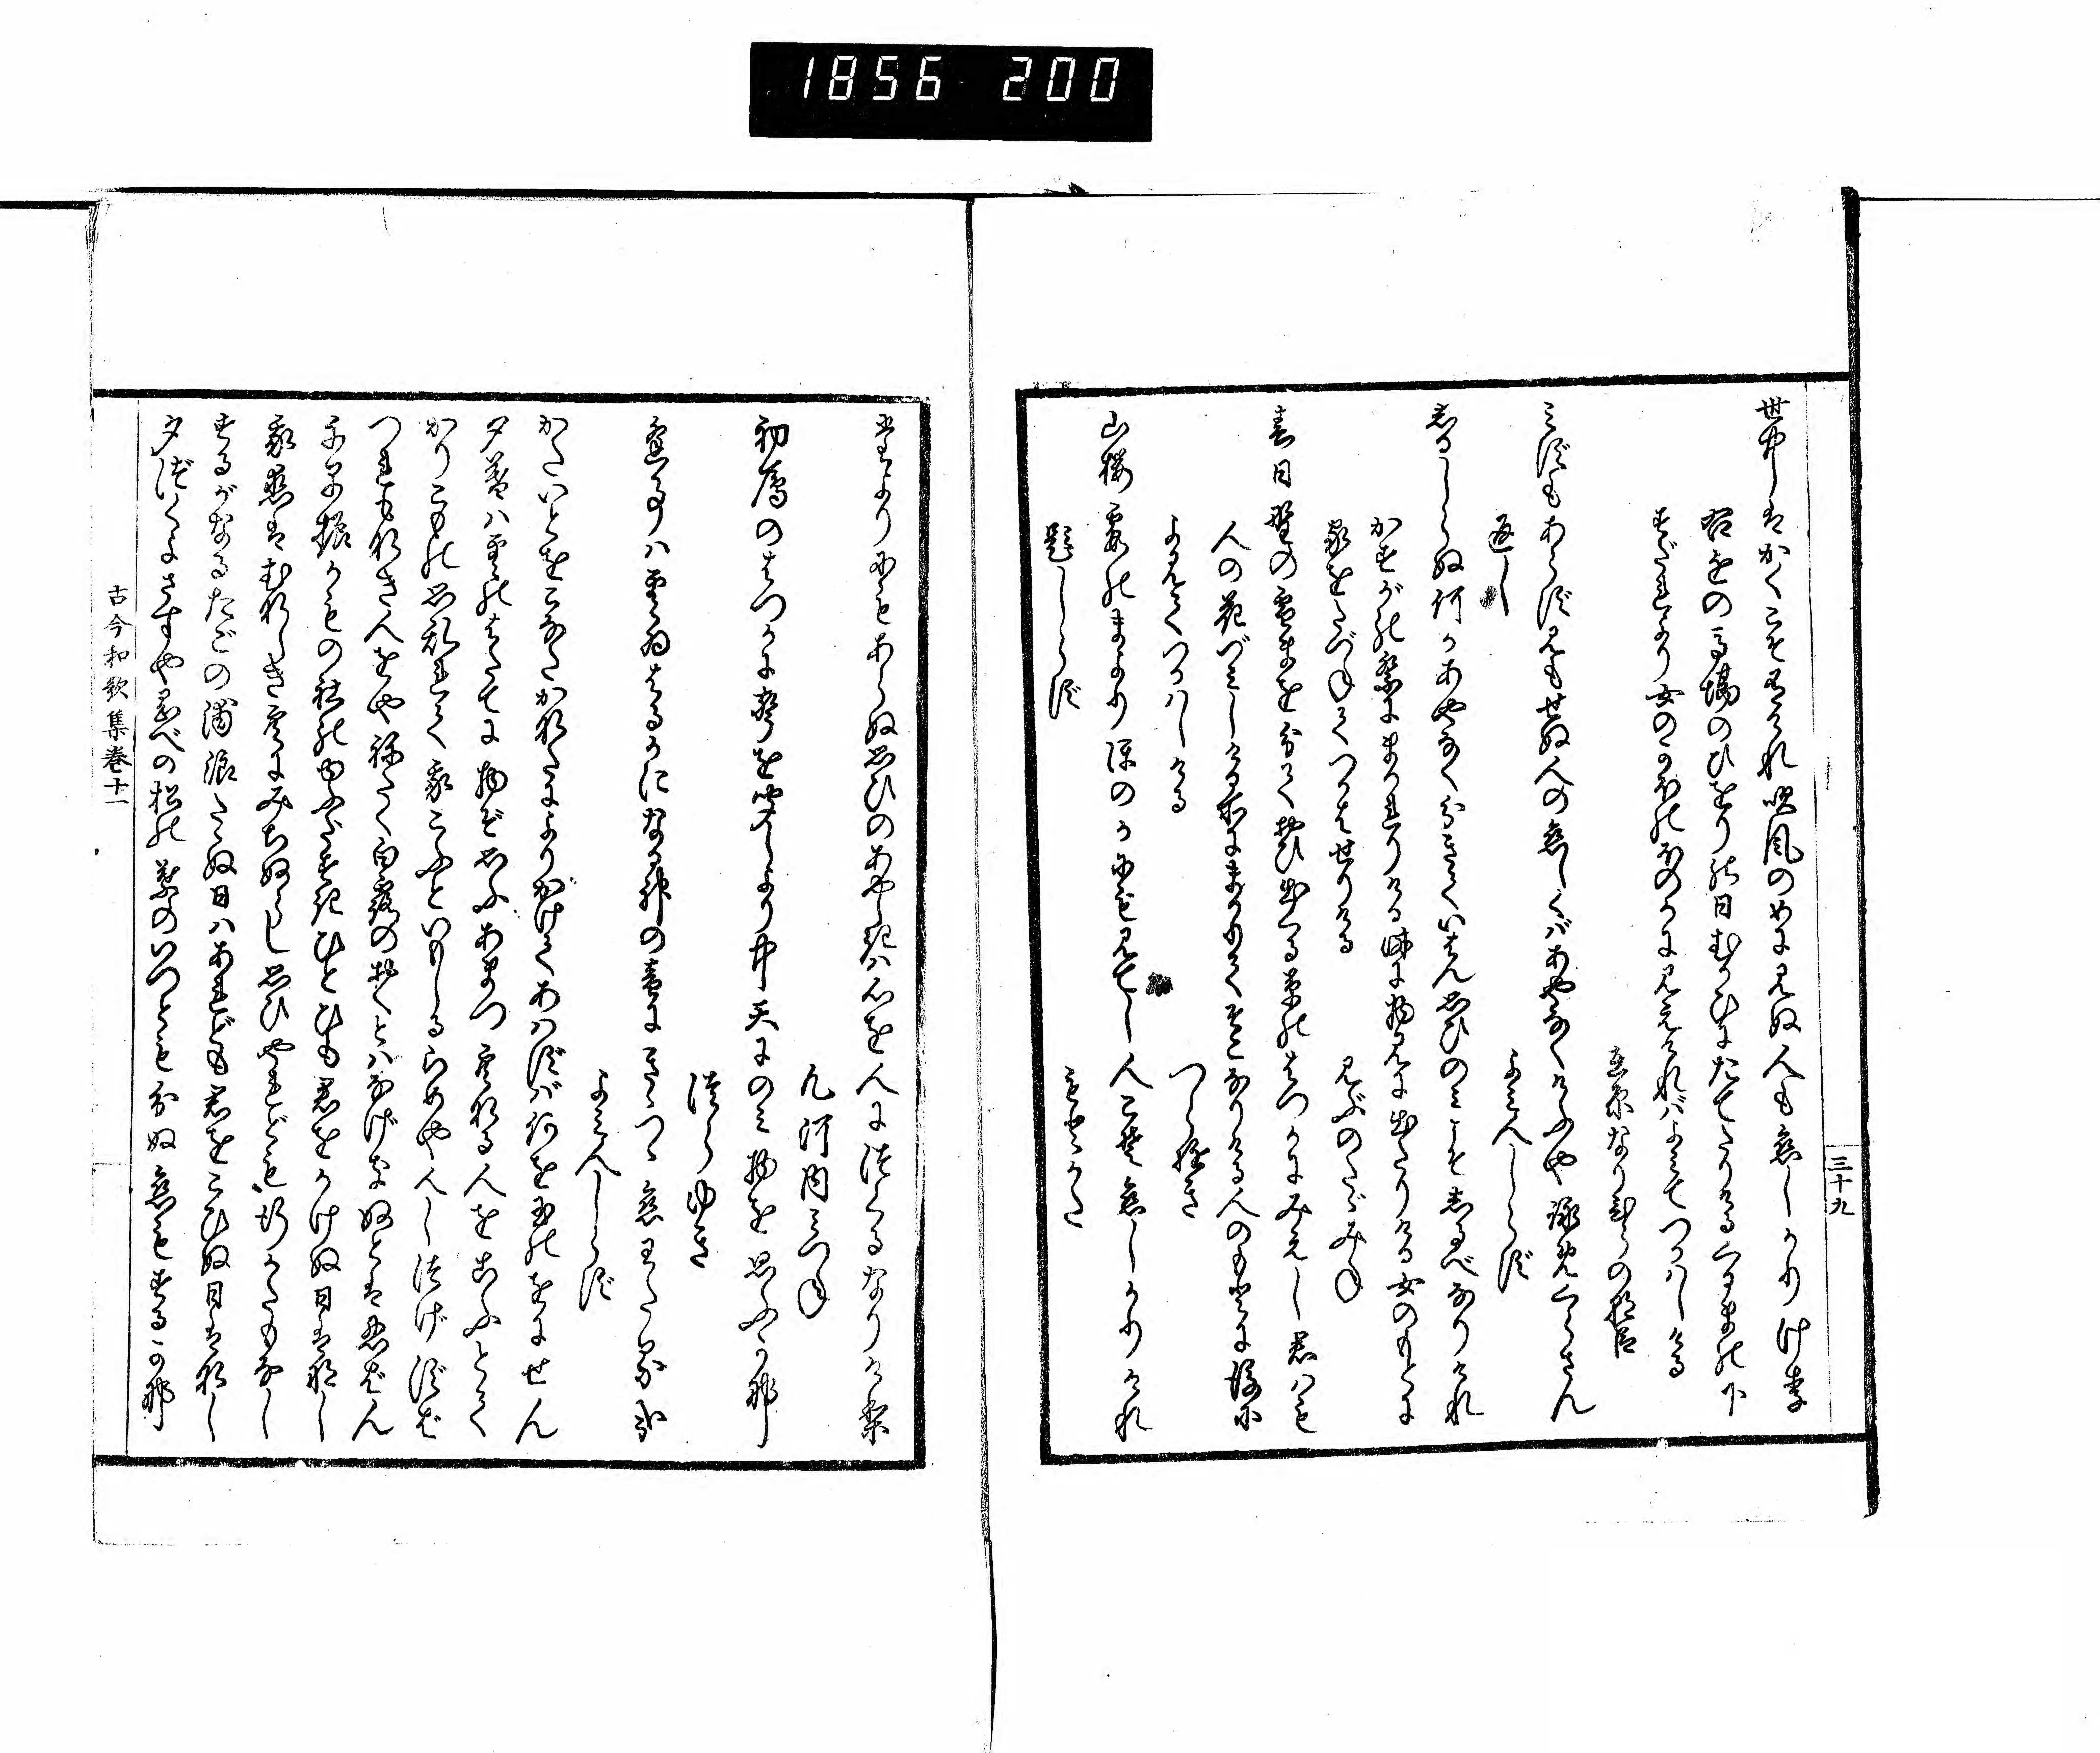 1856 200
三十九
世中はかくこそ有けれ吹風のめに見ぬ人も恋しかりけり
右近の馬場のひをりの日むかひにたてたりける車の下
すだれより女のかほのほのかに見えければよみてつかはしける
在原なりひらの朝臣
みずもあらず見もせぬ人の恋しくばあやなくけふや詠めくらさん
返し
よみ人しらず
しるしらぬ何かあやなく分きていはん思ひのみこそしるべなりけれ
かすがの祭にまかれりける時に物見に出たりける女のもとに
家をたづねてつかはせりける
みぶのたゞみね
春日野の雪まを分て生ひ出くる草のはつかにみえし君はも
人の花づみしける所にまかりてそこなりける人のもとに後に
よみてつかはしける
つらゆき
山桜霞のまよりほのかにも見てし人こそ恋しかりけれ
題しらず
もとかた
たよりにもあらぬ思ひのあやしきは心を人につくるなりけり
凡河内みつね
初雁のはつかに声を聞しより中天にのみ物を思ふかな
つらゆき
逢事は雲ゐはるかになる神の音にきゝつゝ恋わたるかな
よみ人しらず
かたいとをこなたかなたによりかけてあはずば何を玉のをにせん
夕暮は雲のはたてに物ぞ思ふあまつ空なる人をこふとて
かりこもの思乱れて我こふといもしるらめや人しつげずば
つれもなき人をやねたく白露のおくとはなげきぬとはしのばん
千早振かもの社のゆふだすきひとひも君をかけぬ日はなし
我恋はむなしき空にみちぬらし思ひやれども行かたもなし
するがなるたごの浦浪たゝぬ日はあれども君をこひぬ日はなし
夕づくよさすや岡べの松の葉のいつとも分ぬ恋もするかな
古今和歌集巻十一